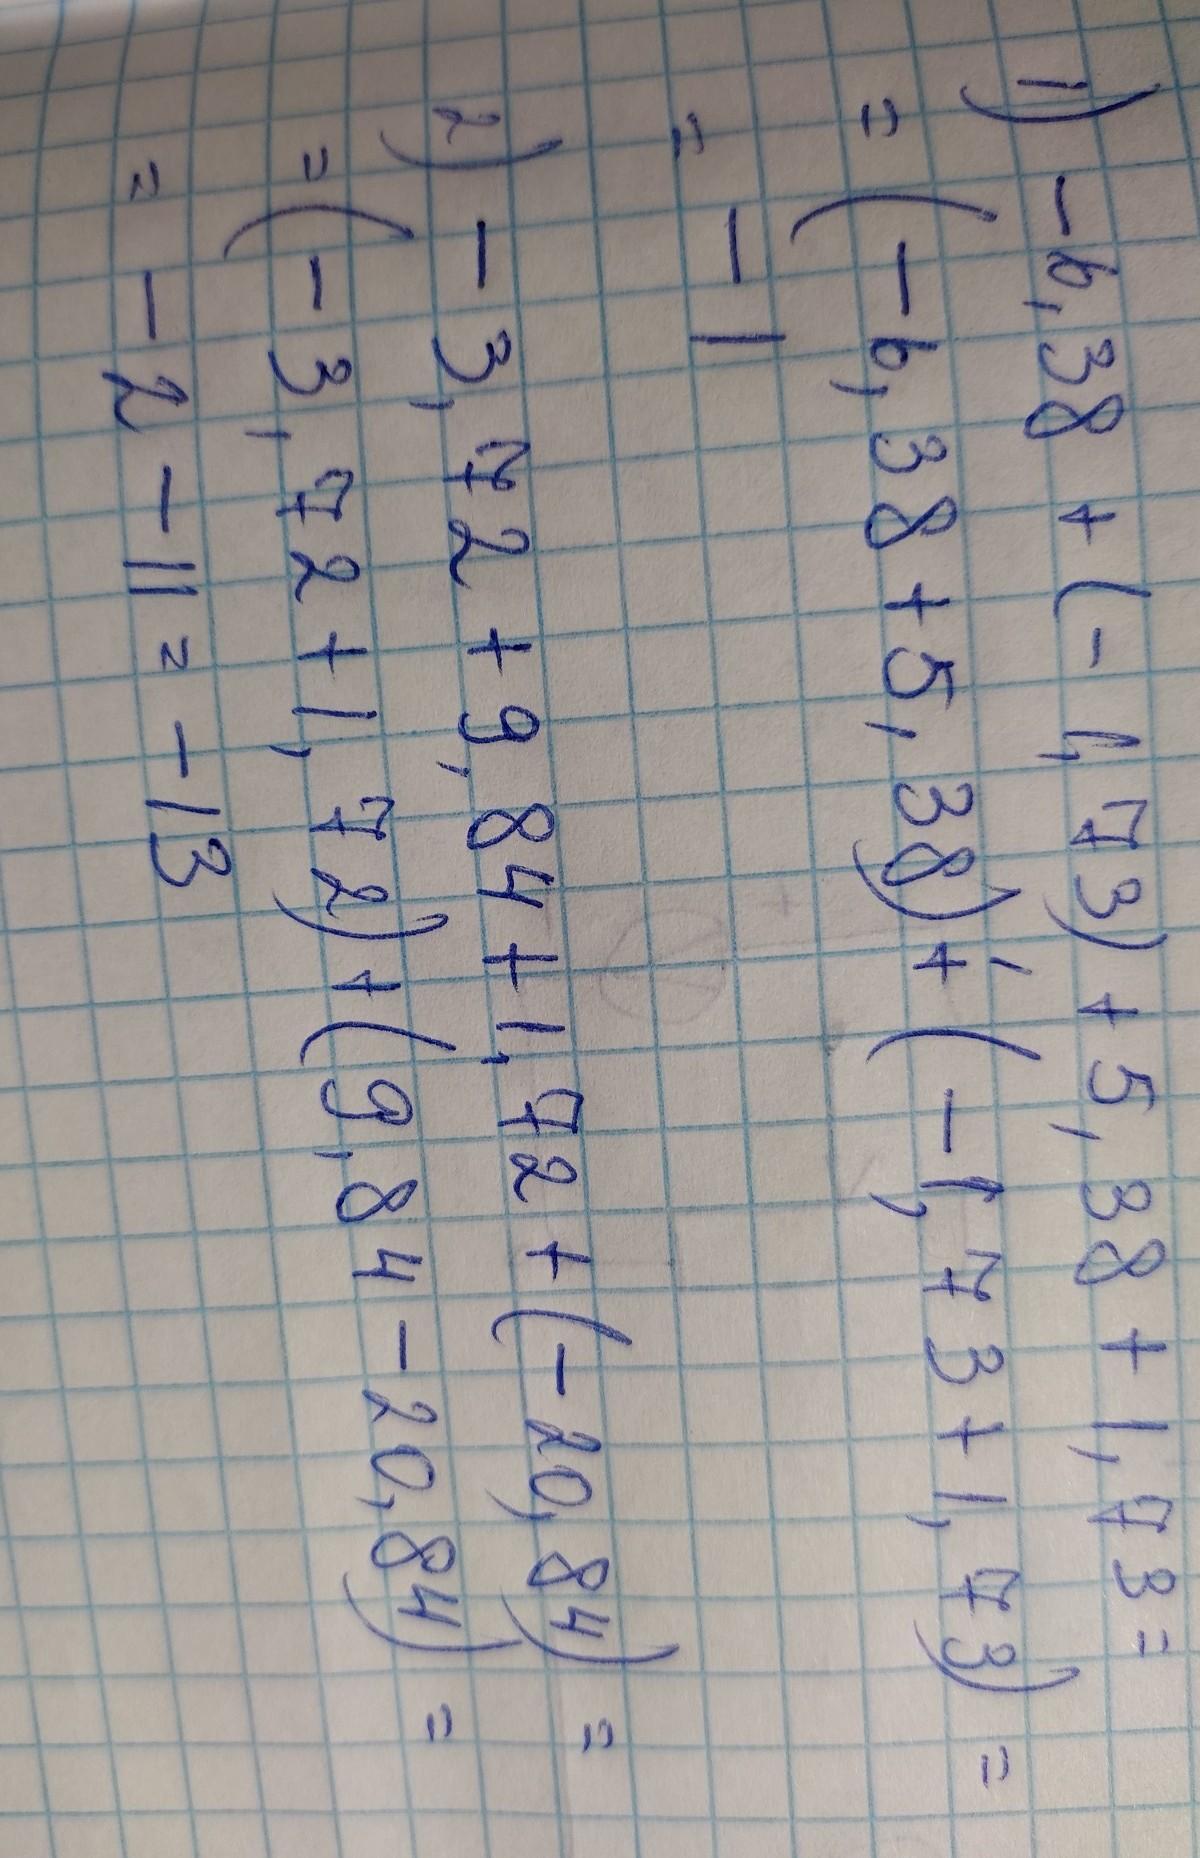 1) -6,38 + (-1,73) + 5,38 + 1,73 =
= (-6,38 + 5,38) + (-1,73 + 1,73) =
= -1
2) -3,72 + 9,84 + 1,72 + (-20,84) =
= (-3,72 + 1,72) + (9,84 - 20,84) =
= -2 - 11 = -13